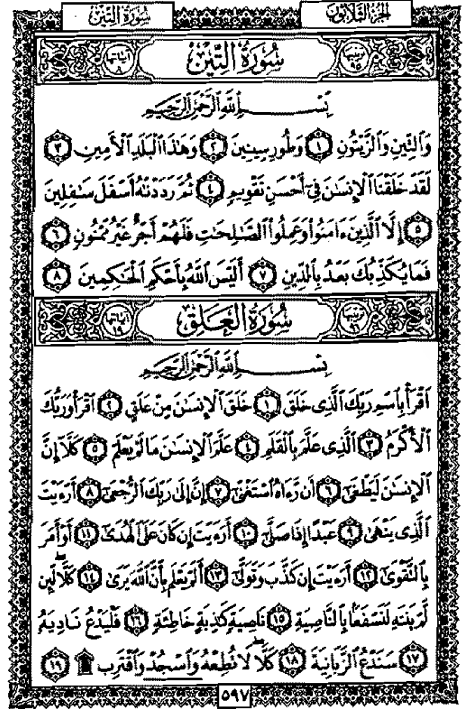 سُورَةُ التِّينِ الجُزْءُ الثَّلَاثُونَ
ترتيبها ٩٥ سُورَةُ التِّينِ آياتها ٨
بِسْمِ اللَّهِ الرَّحْمَٰنِ الرَّحِيمِ
وَالتِّينِ وَالزَّيْتُونِ ١ وَطُورِ سِينِينَ ٢ وَهَٰذَا الْبَلَدِ الْأَمِينِ ٣
لَقَدْ خَلَقْنَا الْإِنسَٰنَ فِىٓ أَحْسَنِ تَقْوِيمٍ ٤ ثُمَّ رَدَدْنَٰهُ أَسْفَلَ سَٰفِلِينَ
٥ إِلَّا الَّذِينَ ءَامَنُوا وَعَمِلُوا الصَّٰلِحَٰتِ فَلَهُمْ أَجْرٌ غَيْرُ مَمْنُونٍ ٦
فَمَا يُكَذِّبُكَ بَعْدُ بِالدِّينِ ٧ أَلَيْسَ اللَّهُ بِأَحْكَمِ الْحَٰكِمِينَ ٨
ترتيبها ٩٦ سُورَةُ الْعَلَقِ آياتها ١٩
بِسْمِ اللَّهِ الرَّحْمَٰنِ الرَّحِيمِ
اقْرَأْ بِاسْمِ رَبِّكَ الَّذِى خَلَقَ ١ خَلَقَ الْإِنسَٰنَ مِنْ عَلَقٍ ٢ اقْرَأْ وَرَبُّكَ
الْأَكْرَمُ ٣ الَّذِى عَلَّمَ بِالْقَلَمِ ٤ عَلَّمَ الْإِنسَٰنَ مَا لَمْ يَعْلَمْ ٥ كَلَّآ إِنَّ
الْإِنسَٰنَ لَيَطْغَىٰٓ ٦ أَن رَّءَاهُ اسْتَغْنَىٰٓ ٧ إِنَّ إِلَىٰ رَبِّكَ الرُّجْعَىٰٓ ٨ أَرَءَيْتَ
الَّذِى يَنْهَىٰ ٩ عَبْدًا إِذَا صَلَّىٰٓ ١٠ أَرَءَيْتَ إِن كَانَ عَلَى الْهُدَىٰٓ ١١ أَوْ أَمَرَ
بِالتَّقْوَىٰٓ ١٢ أَرَءَيْتَ إِن كَذَّبَ وَتَوَلَّىٰٓ ١٣ أَلَمْ يَعْلَم بِأَنَّ اللَّهَ يَرَىٰ ١٤ كَلَّا لَئِن
لَّمْ يَنتَهِ لَنَسْفَعًۢا بِالنَّاصِيَةِ ١٥ نَاصِيَةٍ كَٰذِبَةٍ خَاطِئَةٍ ١٦ فَلْيَدْعُ نَادِيَهُۥ
١٧ سَنَدْعُ الزَّبَانِيَةَ ١٨ كَلَّا لَا تُطِعْهُ وَاسْجُدْ وَاقْتَرِب ۩ ١٩
٥٩٧